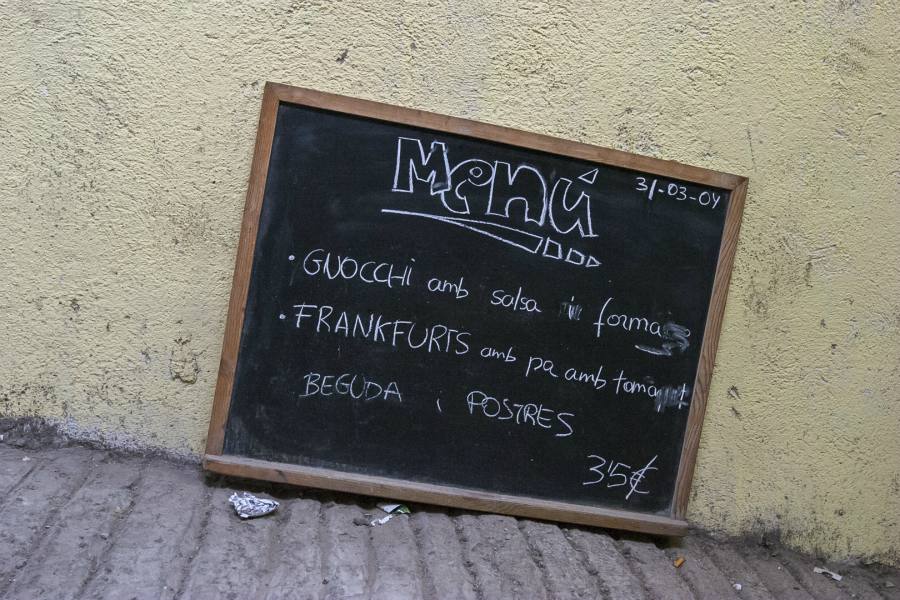 Menú
31-03-04
• GNOCCHi amb salsa i forma
• FRANKFURTS amb pa amb tomaquet
BEGUDA i POSTRES
3'5€